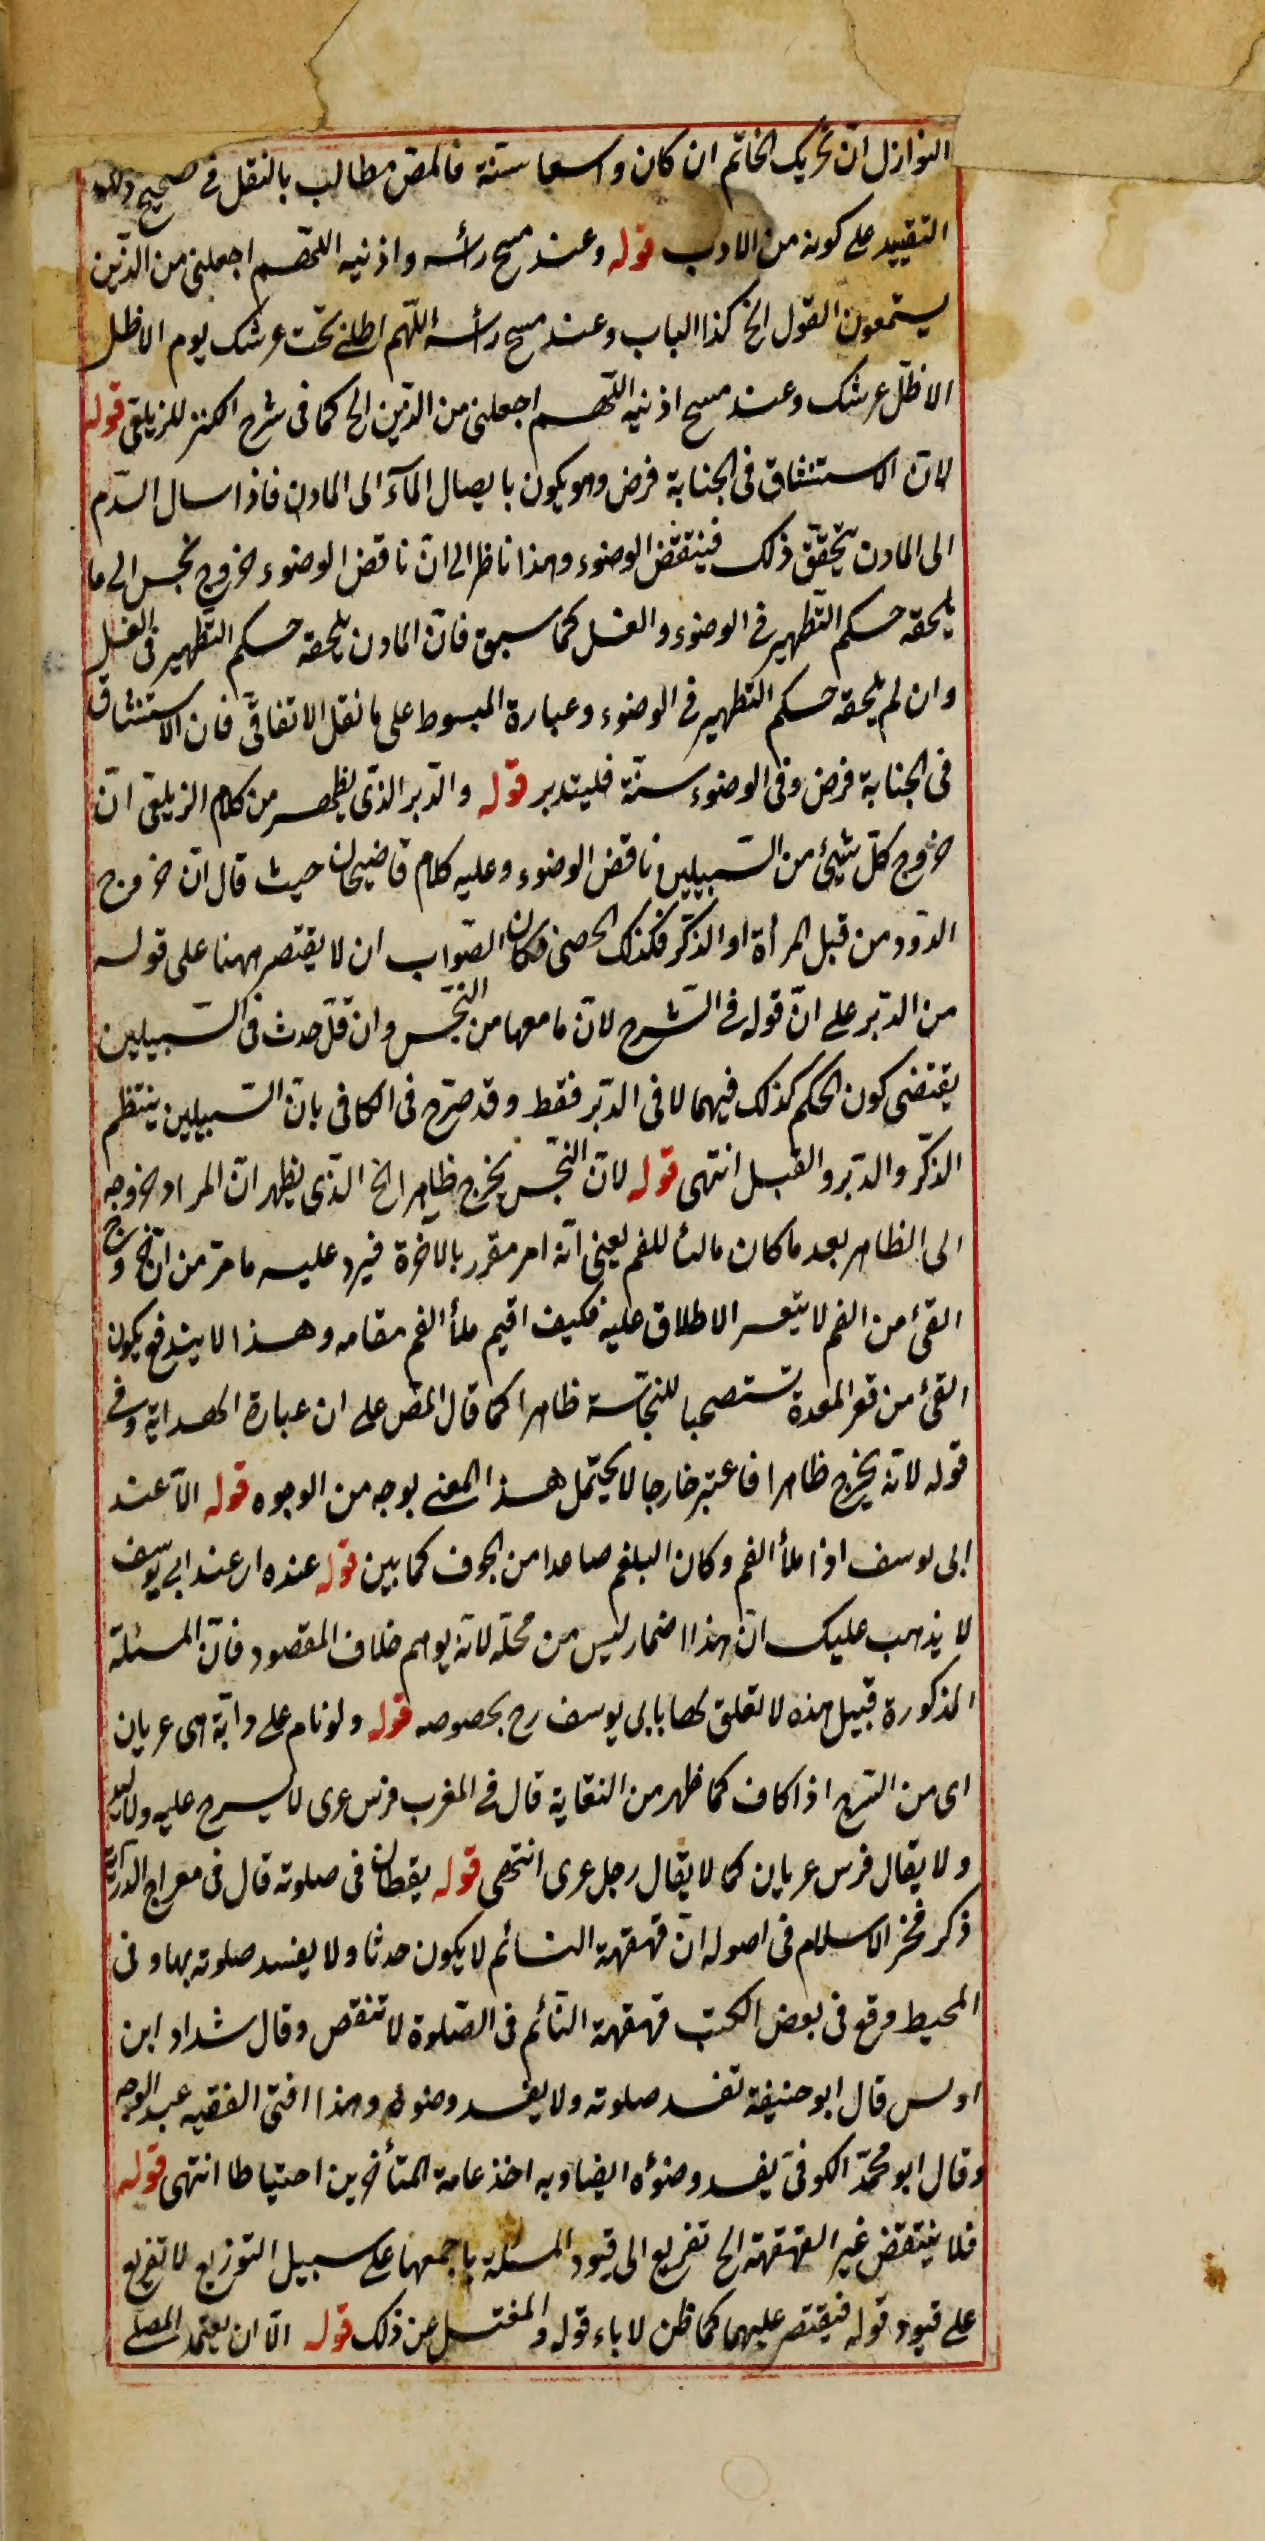 النوازل ان تحريك الخاتم ان كان واسعا سنة فالمص مطالب بالنقل في صحيح وله
التقييد على كونه من الادب قوله وعند مسح رأسه واذنيه اللهم اجعلني من الذين
يستمعون القول الخ كذا الباب وعند مسح رأسه اللهم اظلني تحت عرشك يوم لا ظل
الا ظل عرشك وعند مسح اذنيه اللهم اجعلني من الذين الخ كما في شرح الكنز للزيلعي قوله
لان الاستنشاق في الجنابة فرض وهو يكون بايصال الماء الى المارن فاذا سال الدم
الى المارن يتحقق ذلك فينتقض الوضوء وهذا ناظر الى ان ناقض الوضوء خروج نجس الى ما
يلحقه حكم التطهير في الوضوء والغسل كما سبق فان المارن يلحقه حكم التطهير في الغسل
وان لم يلحقه حكم التطهير في الوضوء وعبارة المبسوط على ما نقل الاتفاقي فان الاستنشاق
في الجنابة فرض وفي الوضوء سنة فليتدبر قوله والدبر الذي يظهر من كلام الزيلعي ان
خروج كل شيئ من السبيلين ناقض الوضوء وعليه كلام قاضيخان حيث قال ان خروج
الدود من قبل المرأة او الذكر فكذلك الحصى فكان الصواب ان لا يقتصر ههنا على قوله
من الدبر على ان قوله في الشرح لان ما معها من النجس وان قل حدث في السبيلين
يقتضي كون الحكم كذلك فيهما لا في الدبر فقط وقد صرح في الكافي بان السبيلين ينتظم
الذكر والدبر والقبل انتهى قوله لان النجس يخرج ظاهرا الخ الذي يظهر ان المراد خروجه
الى الظاهر بعد ما كان مالئا للفم يعني انه امر مقرر بالاخرة فيرد عليه ما مر من ان خروج
القئ من الفم لا يتعسر الاطلاق عليه فكيف اقيم ملأ الفم مقامه وهذا لا يندفع بكون
القئ من قعر المعدة مستصحبا للنجاسة ظاهرا كما قال المص على ان عبارة الهداية وفي
قوله لانه يخرج ظاهرا فاعتبر خارجا لا يحتمل هذا المعنى بوجه من الوجوه قوله الا عند
ابي يوسف اذا ملأ الفم وكان البلغم صاعدا من الجوف كما بين قوله عنده اي عند ابي يوسف
لا يذهب عليك ان هذا اضمار ليس من محله لانه يوهم خلاف المقصود فان المسئلة
المذكورة قبيل هذه لا تعلق لها بابي يوسف رح بخصوصه قوله ولو نام على دابة هي عريان
اى من السرج اذا كاف كما ظهر من النقاية قال في المغرب فرس عرى لا سرج عليه ولا لبد
ولا يقال فرس عريان كما لا يقال رجل عرى انتهى قوله يقظان في صلوته قال في معراج الدراية
ذكر فخر الاسلام في اصوله ان قهقهة النائم لا يكون حدثا ولا يفسد صلوته بها وفي
المحيط وقع في بعض الكتب قهقهة النائم في الصلوة لا تنقض وقال شداد ابن
اوس قال ابو حنيفة تفسد صلوته ولا يفسد وضوئه وهذا افتى الفقيه عبد الوحد
وقال ابو محمد الكوفي يفسد وضوئه ايضا وبه اخذ عامة المتأخرين احتياطا انتهى قوله
فلا ينتقض غير القهقهة الخ تفريع الى قيود المسئلة باجمعها على سبيل التوزيع لا تفريع
على قيود قوله فيقتصر عليهما كما ظن لاباء قوله والمغتسل عن ذلك قوله الا ان يعتمد المصلي